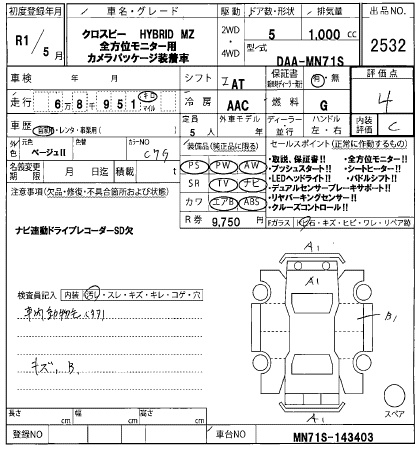 初度登録年月
R1/5月
車名・グレード
クロスビー HYBRID MZ
全方位モニター用
カメラパッケージ装着車
駆動
2WD
・
4WD
ドア数・形状
5
排気量
1,000 cc
型式
DAA-MN71S
出品NO.
2532
車検 年 月
シフト
IAT
保証書
有・無
評価点
4
走行
6万8千951
キロ
マイル
冷房
AAC
燃料
G
内装評価
C
車歴
自家用・レンタ・事業用( )
定員
5人
外車モデル
年
ディーラー
並行
ハンドル
左・右
外色
元色
ベージュⅡ
色替
カラーNO
C7S
名義変更期限 月 日
積載 t
注意事項(欠品・修復・不具合箇所および状態)
ナビ連動ドライブレコーダーSD欠
装備品(純正品に限る)
PS PW AW
SR TV ナビ
カワ エアB ABS
R券 9,750 円
セールスポイント(正常に作動するもの)
・取説、保証書!! ・全方位モニター!!
・プッシュスタート!! ・シートヒーター!!
・LEDヘッドライト!! ・パドルシフト!!
・デュアルセンサーブレーキサポート!!
・リヤパーキングセンサー!!
・クルーズコントロール!!
Fガラス 飛石・キズ・ヒビ・ワレ・リペア跡
検査員記入 内装 汚レ・スレ・キズ・キレ・コゲ・穴
キズ、B.
A1
A1
B1
A1
スペア
長さ cm
幅 cm
高さ cm
登録NO
車台NO
MN71S-143403